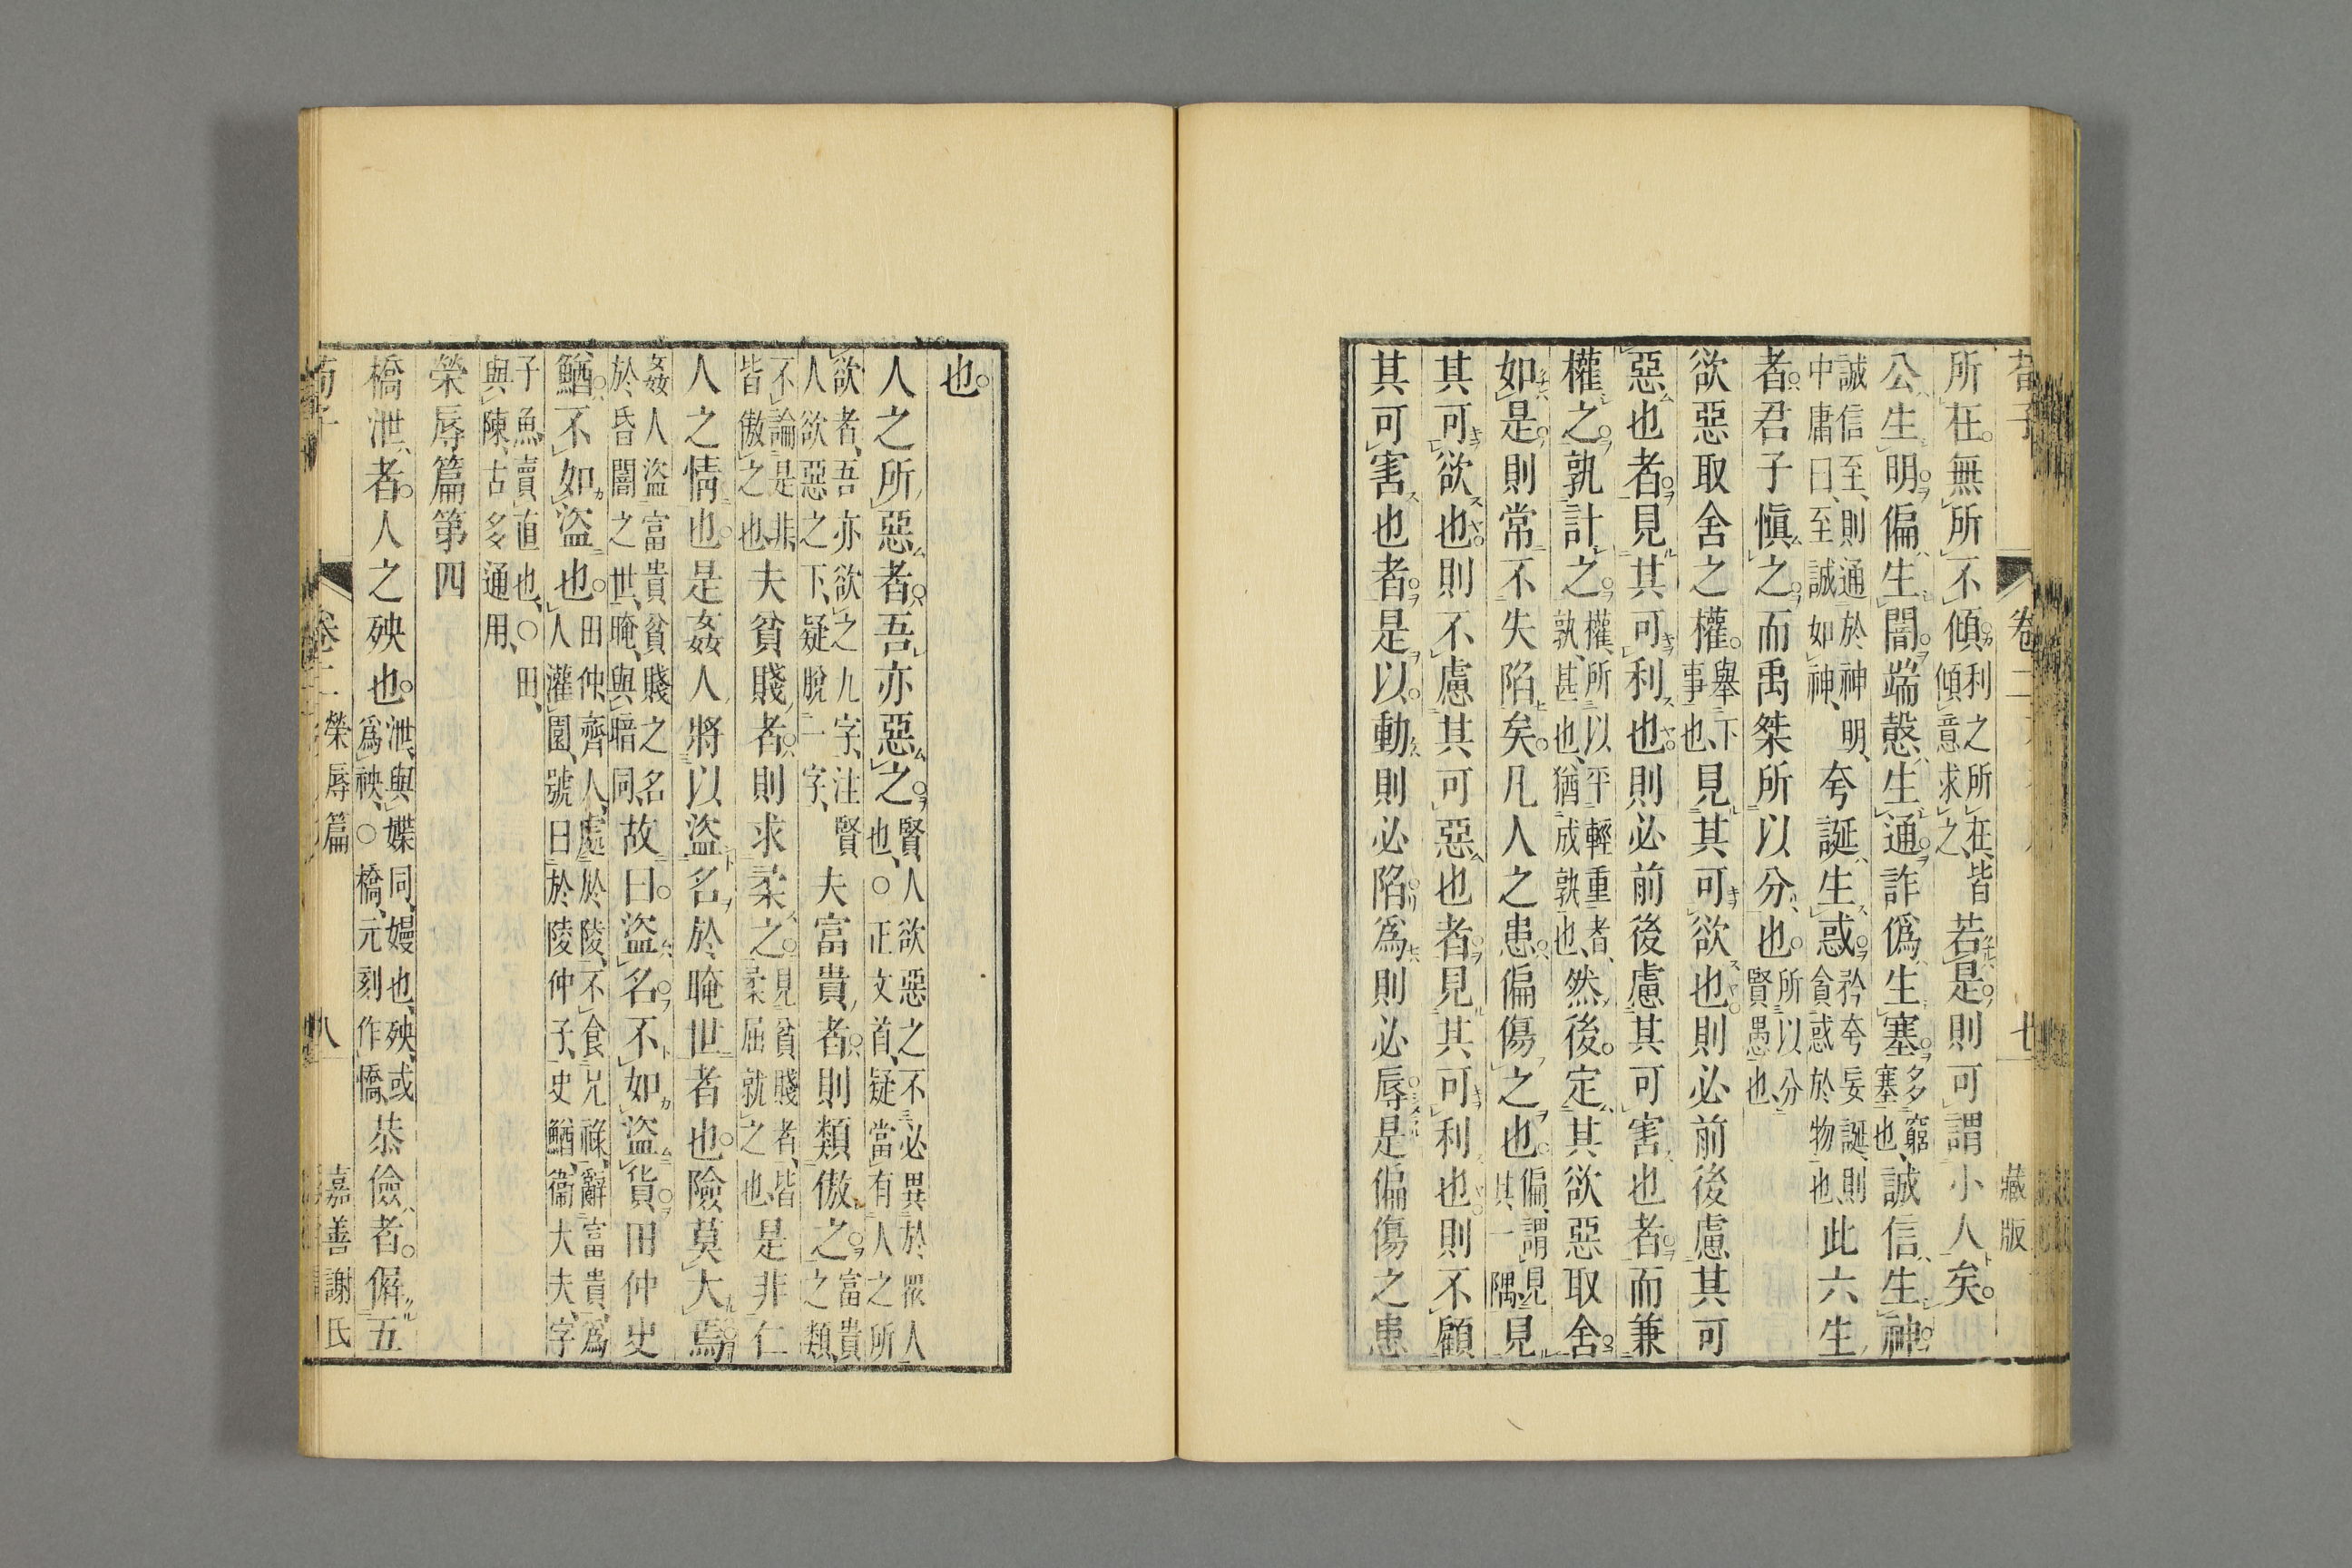 荀子 卷二 七 藏版
所在。無所不傾。利之所在、皆傾意求之、若是。則可謂小人矣。
公生明。偏生闇。端慤生通。詐僞生塞。多窮塞也、誠信生神。
誠信至、則通於神明、中庸曰、至誠如神、夸誕生惑。矜夸妄誕、則貪惑於物也、此六生
者。君子愼之。而禹桀所以分也。所以分賢愚也、
欲惡取舍之權。舉下事也、見其可欲也。則必前後慮其可
惡也者。見其可利也。則必前後慮其可害也者。而兼
權之。孰計之。權、所以平輕重者、孰、甚也、猶成孰也、然後。定其欲惡取舍。
如是。則常不失陷矣。凡人之患。偏傷之也。偏、謂見其一隅、見
其可欲也。則不慮其可惡也者。見其可利也。則不顧
其可害也者。是以。動則必陷。爲則必辱。是偏傷之患
也。
人之所惡者。吾亦惡之。賢人欲惡之、不必異於衆人也、○正文首、疑當有人之所
欲者、吾亦欲之九字、注賢人欲惡之下、疑脫一字、夫富貴者。則類傲之。富貴之類、
不論是非、皆傲之也、夫貧賤者。則求柔之。見貧賤者、皆柔屈就之也、是非仁
人之情也。是姦人將以盜名於晻世者也。險莫大焉。
姦人盜富貴貧賤之名於昏闇之世、晻、與暗同、故曰。盜名。不如盜貨。田仲史
鰌。不如盜也。田仲、齊人、處於陵、不食兄祿、辭富貴、爲人灌園、號曰於陵仲子、史鰌、衞大夫、字
子魚、賣直也、○田、與陳、古多通用、
榮辱篇第四
橋泄者。人之殃也。泄、與媟同、嫚也、殃、或爲祅、○橋、元刻作憍、恭儉者。偋五
荀子 卷二 榮辱篇 八 嘉善謝氏